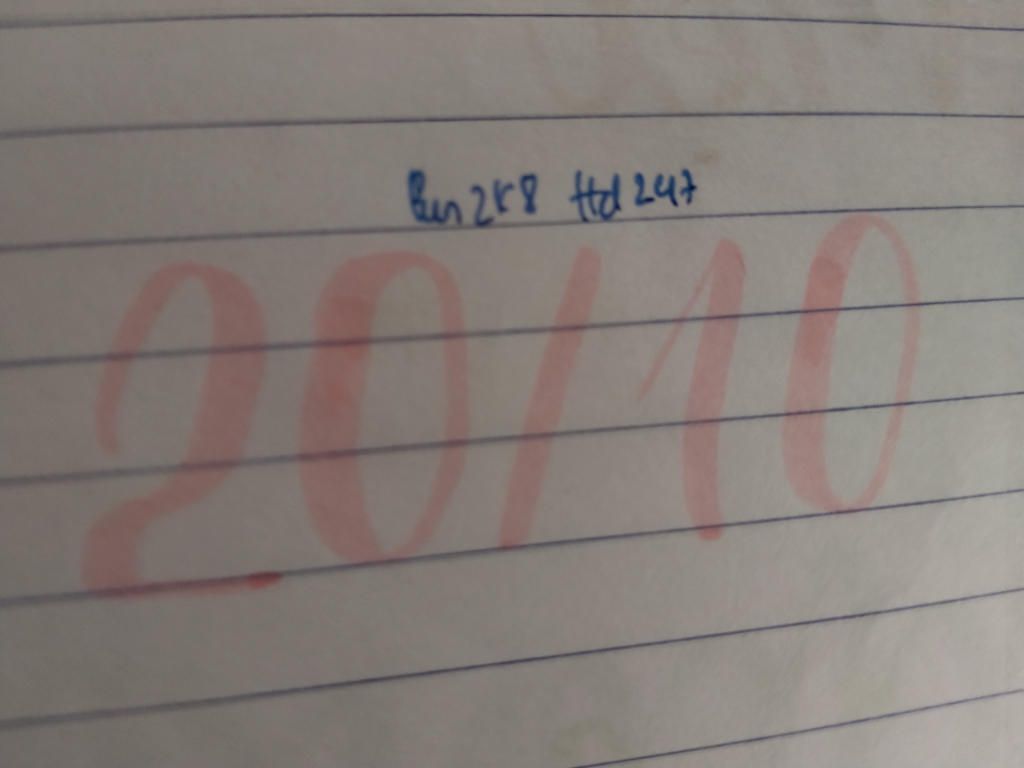 Bun 2k8 Hd 247
20/10